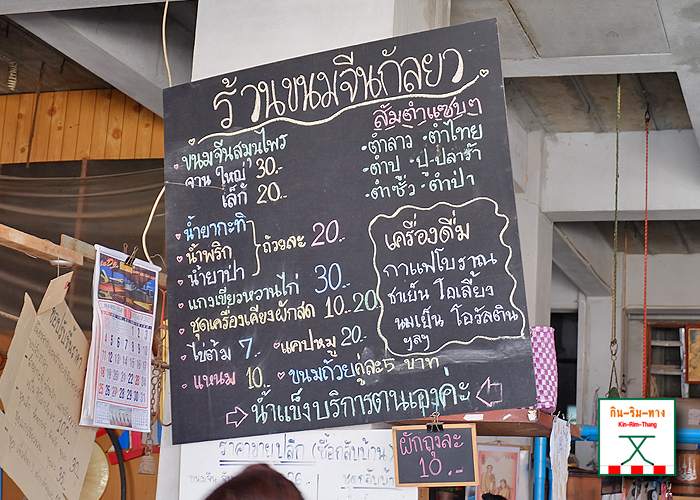 ร้านขนมจีนกัลยา
ขนมจีนสมุนไพร
จาน ใหญ่ 30.-
เล็ก 20.-
น้ำยากะทิ
น้ำพริก
น้ำยาป่า
ถ้วยละ 20..
แกงเขียวหวานไก่ 30..
ชุดเครื่องเคียงผักสด 10..20
ไข่ต้ม 7.. แคปหมู 20..
แหนม 10.. ขนมถ้วยคู่ละ 5 บาท
น้ำแข็งบริการตนเองค่ะ
ส้มตำแซ่บๆ
ตำลาว ตำไทย
ตำปู ปู-ปลาร้า
ตำซั่ว ตำป่า
เครื่องดื่ม
กาแฟโบราณ
ชาเย็น โอเลี้ยง
นมเย็น โอวัลติน
ฯลฯ
ผักถุงละ
10..
ราคาขายปลีก (ซื้อกลับบ้าน)
กิน-ริม-ทาง
Kin-Rim-Thang